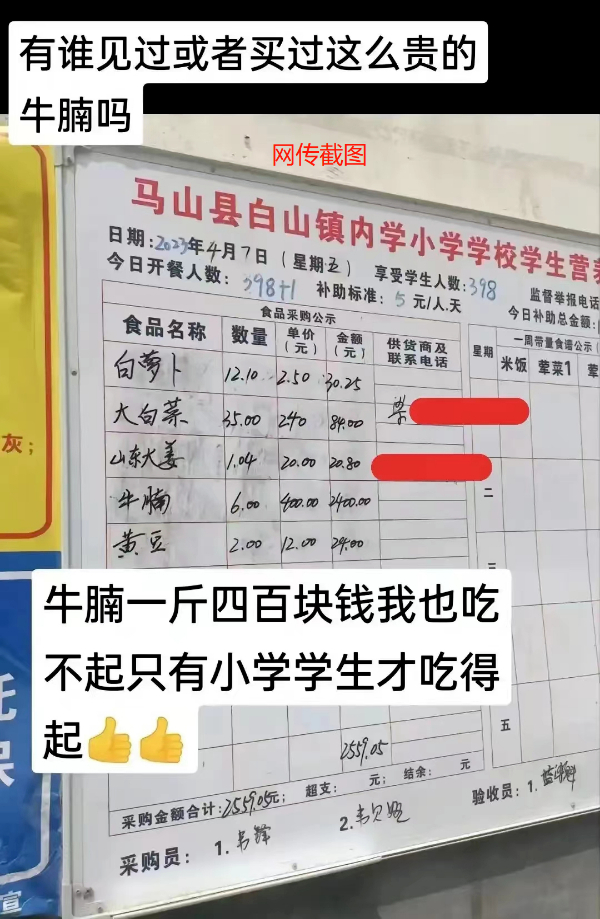 有谁见过或者买过这么贵的
牛腩吗
网传截图
马山县白山镇内学小学学校学生营养
日期:2023年4月7日(星期五) 享受学生人数:398 监督举报电话
今日开餐人数:398+1 补助标准:5元/人.天 今日补助总金额:
食品采购公示
食品名称 数量 单价(元) 金额(元) 供货商及联系电话
白萝卜 12.10 2.50 30.25
大白菜 35.00 240 84.00
山东大姜 1.04 20.00 20.80
牛腩 6.00 400.00 2400.00
黄豆 2.00 12.00 24.00
一周带量食谱公示(
星期 米饭 荤菜1 荤
二
三
五
灰;
牛腩一斤四百块钱我也吃
不起只有小学学生才吃得
起👍👍
托
保
宣
2559.05
采购金额合计:2559.05元; 超支: 元; 结余: 元
采购员: 1. 2. 验收员: 1.